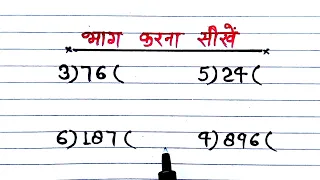 भाग करना सीखें
3)76( 5)24(
6)187( 4)896(